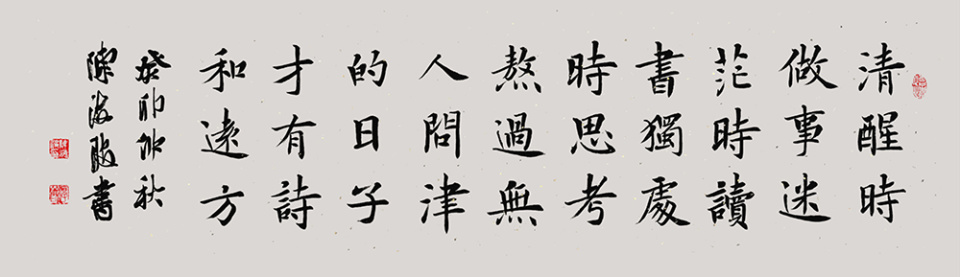 清醒時
做事迷
茫時讀
書獨處
時思考
熬過無
人問津
的日子
才有詩
和遠方
癸卯仲秋
陳海書